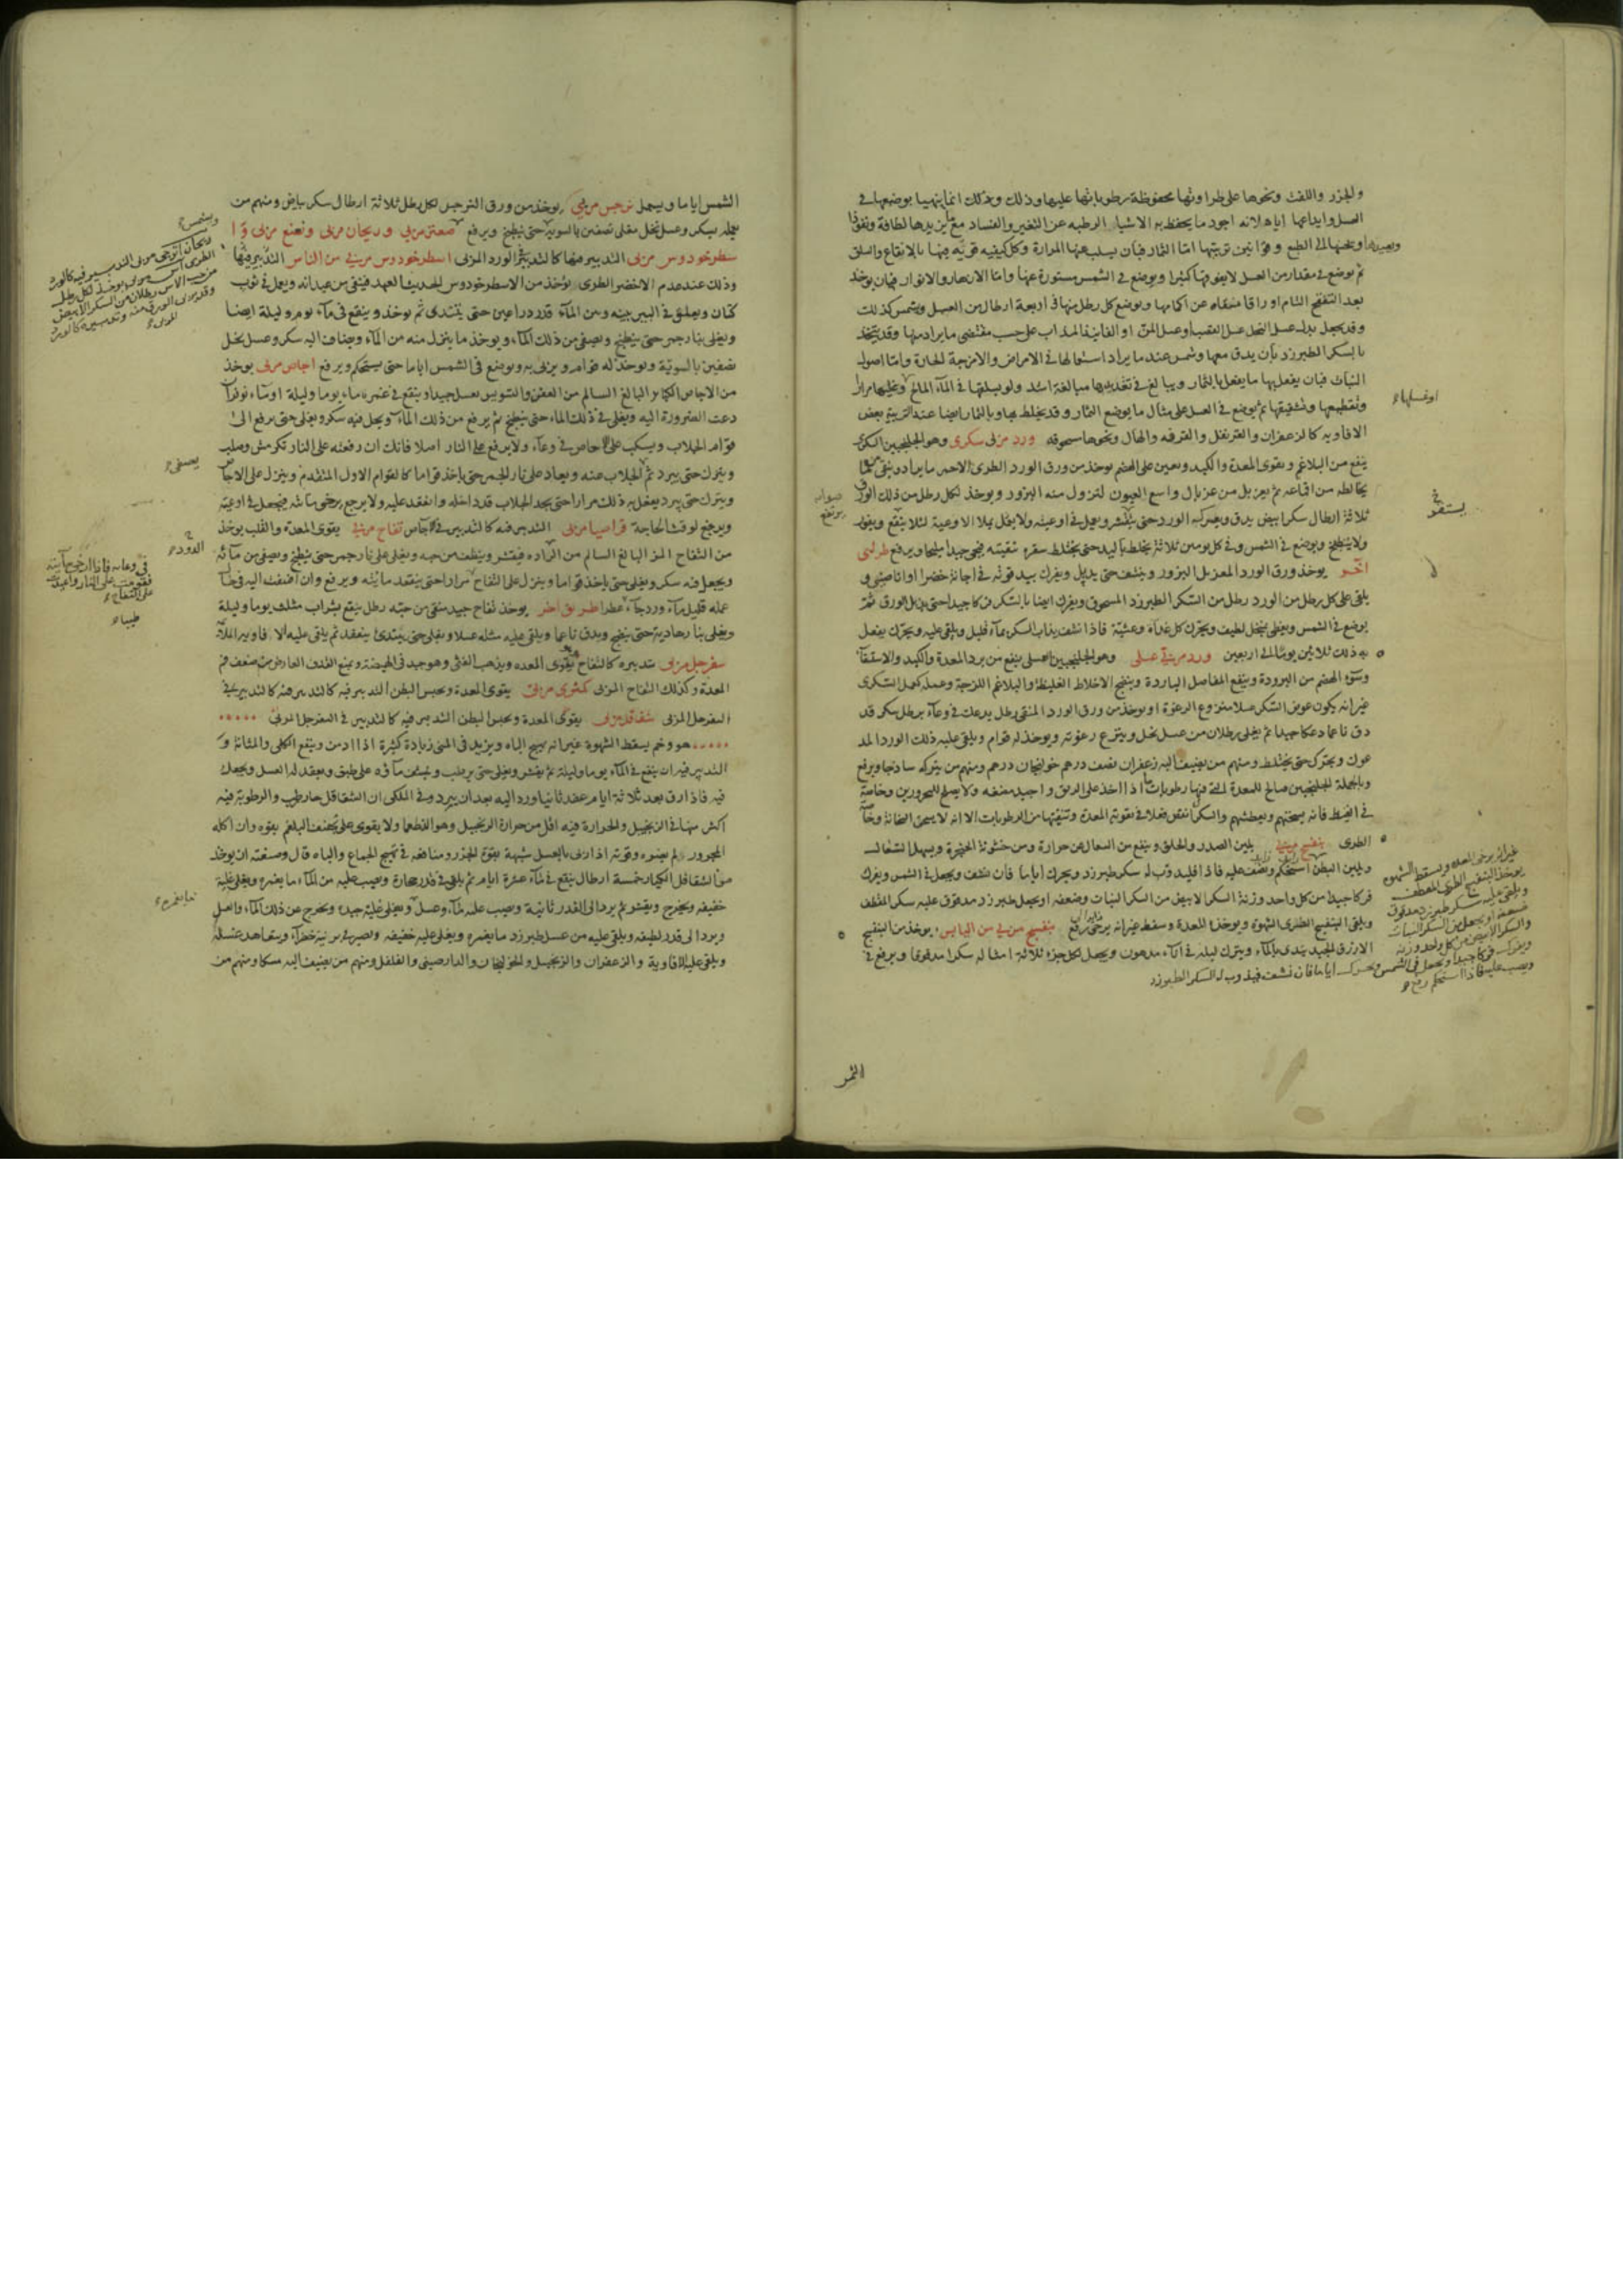 والجزر واللفت ونحوها على طراوتها محفوظة برطوباتها عليها وذلك وذلك انما يتهيا بوضعها في
العسل وايداعها اياه لانه اجود ما يحفظ به الاشياء الرطبه عن التغير والفساد مع ما يزيدها لطافة ونفوذا
وتحبيبها الى الطبع وقوانين تربيتها اما الثمار فبان يسلب عنها المرارة وكل كيفيه قويه فيها بالانقاع والسلق
ثم يوضع في مقدار من العسل لا يفوقها كثيرا ويوضع في الشمس مستورة عنها واما الازهار والانوار فبان يوخذ
بعد التفتح التام اوراقا منقاه عن اكمامها ويوضع كل رطل منها في اربعة ارطال من العسل ويشمس كذلك
وقد يجعل بدل عسل النحل عسل القصب او عسل المن او الفانيذ المذاب على حسب مقتضى ما يراد منها وقد يتخذ
بالسكر الطبرزد بان يدق معها ويشمس عند ما يراد استعمالها في الامراض والامزجة الحارة واما اصول
النبات فبان يفعل بها ما يفعل بالثمار ويبالغ في تعذيبها مبالغة اشد ولو بسلقها في الماء المالح وغليها مرارا
وتقطيعها وتشقيقها ثم يوضع في العسل على مثال ما يوضع الثمار وقد يخلط بها وبالثمار ايضا عند التربية بعض
الافاويه كالزعفران والقرنفل والقرفه والهال ونحوها مسحوقه ورد مربى سكرى وهو الجلنجبين السكرى
ينفع من البلاغم ويقوى المعدة والكبد ويعين على الهضم يوخذ من ورق الورد الطرى الاحمر ما يراد وينقى مما
يخالطه من اقماعه ثم يغربل من غربال واسع العيون لتزول منه البزور ويوخذ لكل رطل من ذلك الورق
ثلاثة ارطال سكر ابيض يدق ويعرك به الورد حتى ينكسر ويعمل في اوعيته ولا يعمل بملا الاوعية لئلا ينقع ويفور
ولا ينطبخ ويوضع في الشمس وفي كل يومين ثلاثة يخلط باليد حتى يختلط سفره بنقيته فيجى جيدا مليحا ويرفع طريق
اخر يوخذ ورق الورد المغربل البزور وينشف حتى يذبل ويفرك بيد قويه في اجانة خضرا او اناء صينى و
يلقى على كل رطل من الورد رطل من السكر الطبرزد المسحوق ويفرك ايضا بالسكر فركا جيدا حتى يذبل الورق ثم
يوضع في الشمس ويغطى بمنخل لطيف ويحرك كل غداة وعشية فاذا نشف يذاب السكر بماء قليل ويلقى عليه ويحرك يفعل
به ذلك ثلاثين يوما الى اربعين ورد مربى عسلى وهو الجلنجبين العسلى ينفع من برد المعدة والكبد والاستسقاء
وسوء الهضم من البرودة وينفع المفاصل الباردة وينضج الاخلاط الغليظة والبلاغم اللزجة وعمله كعمل السكرى
غير انه يكون عوض السكر عسلا منزوع الرغوة او يوخذ من ورق الورد المنقى رطل يدعك في وعاء برطل سكر قد
دق ناعما دعكا جيدا ثم يغلى رطلان من عسل نحل وينزع رغوته ويوخذ له قوام ويلقى عليه ذلك الورد المد
عوك ويحرك حتى يختلط ومنهم من يضيف اليه زعفران نصف درهم خولنجان درهم ومنهم من يتركه ساذجا ويرفع
وبالجملة الجلنجبين صالح للمعدة التي فيها رطوبات اذا اخذ على الريق واجيد مضغه ولا يصلح للمحرورين وخاصة
في القيظ فانه يسخنهم ويعطشهم والسكرى انقص فعلا في تقوية المعدة وتنقيتها من الرطوبات الا انه لا يسخن اسخانه وخاصة
الطرى بنفسج مربى يلين الصدر والحلق وينفع من السعال عن حرارة ومن خشونة الحنجرة ويسهل السعال
ويلين البطن فاذا استحكم ونشف عليه فاذا قليله ذوب له سكر طبرزد ويحرك اياما فان نشف ويجعل في الشمس ويفرك
فركا جيدا من كل واحد وزنة السكر الابيض من السكر النبات وضعفه او يجعل طبرزد مدقوق عليه سكر المقطف
ويلقى البنفسج الطرى الشهوة ويوخذ المعدة ويسقط غير انه يرخى رفع بنفسج مربى من اليابس يوخذ من البنفسج
الازرق الجيد يندى بالماء ويترك ليله في اناء مدهون ويجعل لكل جزء ثلاثة امثاله سكرا مدقوقا ويرفع في
او غسلها
يستفو
صوابه يرتفع
غير انه يرخى المعده ويسقط الشهوه
يوخذ البنفسج الطرى المقطف
ويلقى عليه سكر طبرزد مدقوق
ضعفه او يجعل من السكر النبات
والسكر الابيض من كل واحد وزنه
ويفرك فركا جيدا ويجعل في الشمس ويحرك اياما فان نشف فيذوب له السكر الطبرزد
ويصب عليه فاذا استحكم رفع
الثمر
الشمس اياما ويعمل نرجس مربى يوخذ من ورق النرجس لكل رطل ثلاثة ارطال سكر بياض ومنهم من
يعمله بسكر وعسل نحل مغلى نصفين بالسوية حتى ينطبخ ويرفع صعتر مربى وريحان مربى ونعنع مربى وا
سطوخودوس مربى التدبير فيها كالتدبير في الورد المربى اسطوخودوس مربى من اليابس التدبير فيها
وذلك عند عدم الاخضر الطرى يوخذ من الاسطوخودوس الحديث العهد فينقى من عيدانه ويعمل في ثوب
كتان ويعلق في البير بينه وبين الماء قدر ذراعين حتى يتندى ثم يوخذ وينقع في ماء يوم وليلة ايضا
ويغلى بنار جمر حتى ينطبخ ويصفى من ذلك الماء ويوخذ ما ينزل منه من الماء ويضاف اليه سكر وعسل نحل
نصفين بالسويّة ويوخذ له قوام ويربى به ويوضع في الشمس اياما حتى يستحكم ويرفع اجاص مربى يوخذ
من الاجاص الكبار البالغ السالم من العفن والتسويس يغسل جيدا وينقع في غمره ماء يوما وليلة
دعت الضرورة اليه ويغلى في ذلك الماء حتى ينطبخ ثم يرفع من ذلك الماء ويجعل فيه سكر ويغلى حتى يرفع الى
قوام الجلاب ويسكب على الاجاص في وعاء ولا يرفع على النار اصلا فانك ان رفعته على النار تكرمش وصلب
ويترك حتى يبرد ثم الجلاب عنه ويعاد على نار الجمر حتى ياخذ قواما كالقوام الاول المتقدم وينزل على الاجاص
ويترك حتى يبرد يفعل به ذلك مرارا حتى يجد الجلاب قد داخله وانعقد عليه ولا يرجع يرخى مائيته فيجعل في اوعيته
ويرفع لوقت الحاجة قراصيا مربى التدبير فيه كالتدبير في الاجاص تفاح مربى يقوى المعدة والقلب يوخذ
من التفاح المز البالغ السالم من فيقشر وينظف من حبه ويغلى على نار جمر حتى ينطبخ ويصفى من مائه
ويجعل فيه سكر ويغلى حتى ياخذ قواما وينزل على التفاح مرارا حتى ينعقد مائيته ويرفع وان اضفت اليه في حال
عمله قليل ماء ورد جاء عطرا طريق اخر يوخذ تفاح جيد منقى من حبه رطل ينقع بشراب مثلث يوما وليلة
ويغلى بنار هادية حتى ينضج ويدق ناعما ويلقى عليه مثله عسلا ويغلى حتى يبتدئ ينعقد ثم يلقى عليه الافاويه
سفرجل مربى تدبيره كالتفاح يقوى المعده ويذهب الغثى وهو جيد في الهيضة ويمنع القذف العارض من ضعف فم
المعدة وكذلك التفاح المربى كمثرى مربى يقوى المعدة ويحبس البطن التدبير فيه كالتدبير في
السفرجل المربى شقاقل مربى يقوى المعدة ويحبس البطن التدبير فيه كالتدبير في السفرجل المربى
هو وخم يسقط الشهوة غير انه يهيج الباه ويزيد في المنى زيادة كثيرة اذا ادمن وينفع الكلى والمثانة و
التدبير فيه ان ينقع في الماء يوما وليلة ثم يقشر ويغلى حتى يرطب وينشف ماؤه على طبق ويعقد له العسل ويجعل
فيه فاذا رق بعد ثلاثة ايام عقد ثانيا ورد اليه بعد ان يبرد وفي الملكى ان الشقاقل حار رطب والرطوبة فيه
اكثر منها في الزنجبيل والحرارة فيه اقل من حرارة الزنجبيل وهو اللطف ولا يقوى على تجفيف البلغم بقوه وان اكله
المحرور لم يضره وقوته اذا ربى بالعسل شبيهة بقوة الجزر ومنافعه في تهييج الجماع والباه قال وصنعته ان يوخذ
من الشقاقل الكبار خمسة ارطال ينقع في الماء عشرة ايام ثم يلقى في قدر حجارة ويصب عليه من الماء ما يغمره ويغلى غلية
خفيفه ويخرج ويقشر ثم يرد الى القدر ثانية ويصب عليه ماء وعسل ويغلى غلية جيده ويخرج من ذلك الماء والعسل
ويرد الى قدر لطيفه ويلقى عليه من عسل طبرزد ما يغمره ويغلى غليه خفيفه ويصير في برنية خضراء ويتعاهد عسله
ويلقى عليه الافاوية والزعفران والزنجبيل والخولنجان والدارصينى والفلفل ومنهم من يضيف اليه مسكا ومنهم من
ويشمس
ريحان اترجى مربى التدبير فيه كالورد
الطرى اس مربى يوخذ لكل رطل
من حب الاس رطلان من السكر الابيض
المربى
يصفى
الدود
على النار واعيد
على التفاح
طيبا